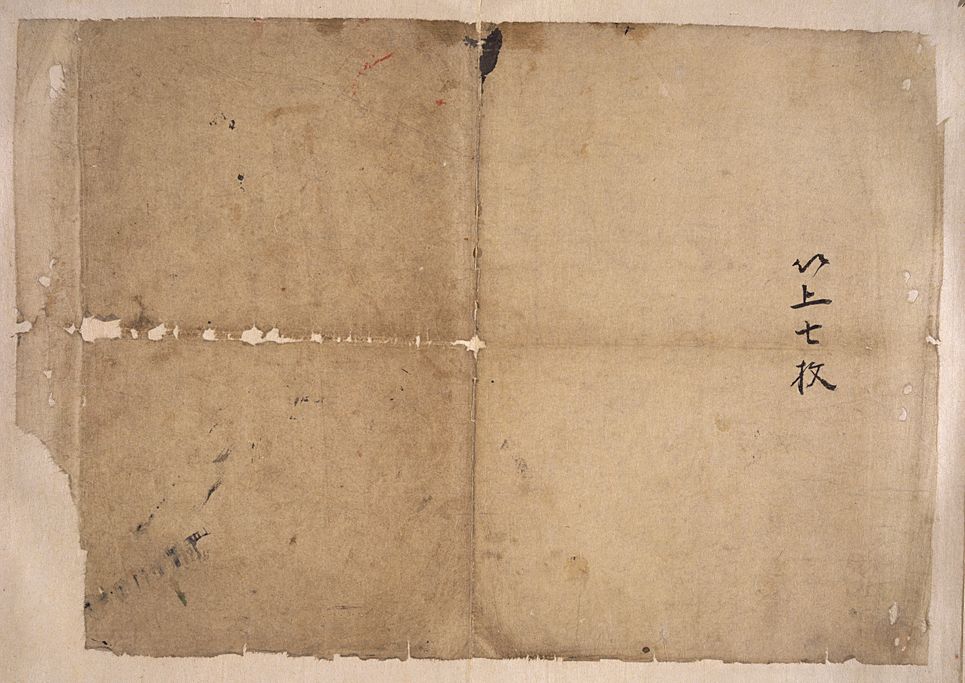 以上七枚